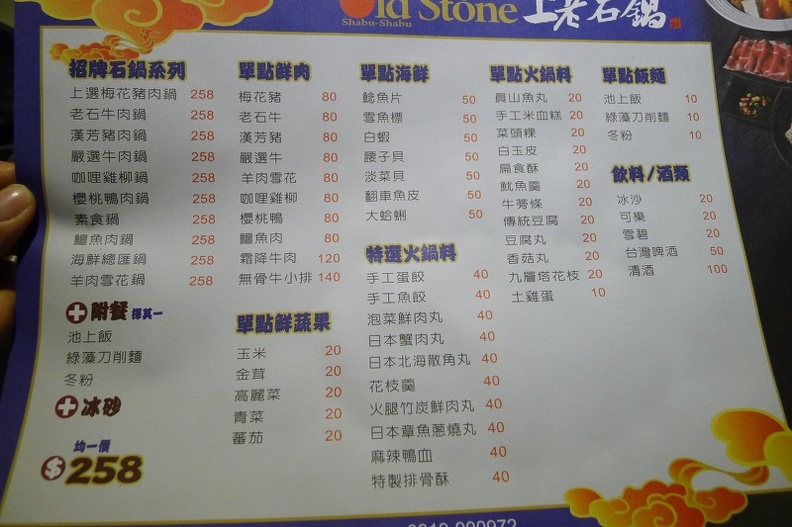 Old Stone 上老石鍋
Shabu-Shabu
招牌石鍋系列
上選梅花豬肉鍋 258
老石牛肉鍋 258
漢芳豬肉鍋 258
嚴選牛肉鍋 258
咖哩雞柳鍋 258
櫻桃鴨肉鍋 258
素食鍋 258
鱷魚肉鍋 258
海鮮總匯鍋 258
羊肉雪花鍋 258
附餐 擇其一
池上飯
綠藻刀削麵
冬粉
冰砂
均一價
$258
單點鮮肉
梅花豬 80
老石牛 80
漢芳豬 80
嚴選牛 80
羊肉雪花 80
咖哩雞柳 80
櫻桃鴨 80
鱷魚肉 80
霜降牛肉 120
無骨牛小排 140
單點鮮蔬果
玉米 20
金茸 20
高麗菜 20
青菜 20
蕃茄 20
單點海鮮
鯰魚片 50
雪魚標 50
白蝦 50
腰子貝 50
淡菜貝 50
翻車魚皮 50
大蛤蜊 50
特選火鍋料
手工蛋餃 40
手工魚餃 40
泡菜鮮肉丸 40
日本蟹肉丸 40
日本北海散角丸 40
花枝羹 40
火腿竹炭鮮肉丸 40
日本章魚蔥燒丸 40
麻辣鴨血 40
特製排骨酥 40
單點火鍋料
員山魚丸 20
手工米血糕 20
菜頭粿 20
白玉皮 20
扁食酥 20
魷魚羹 20
牛蒡條 20
傳統豆腐 20
豆腐丸 20
香菇丸 20
九層塔花枝 20
土雞蛋 10
單點飯麵
池上飯 10
綠藻刀削麵 10
冬粉 10
飲料/酒類
冰沙 20
可樂 20
雪碧 20
台灣啤酒 50
清酒 100